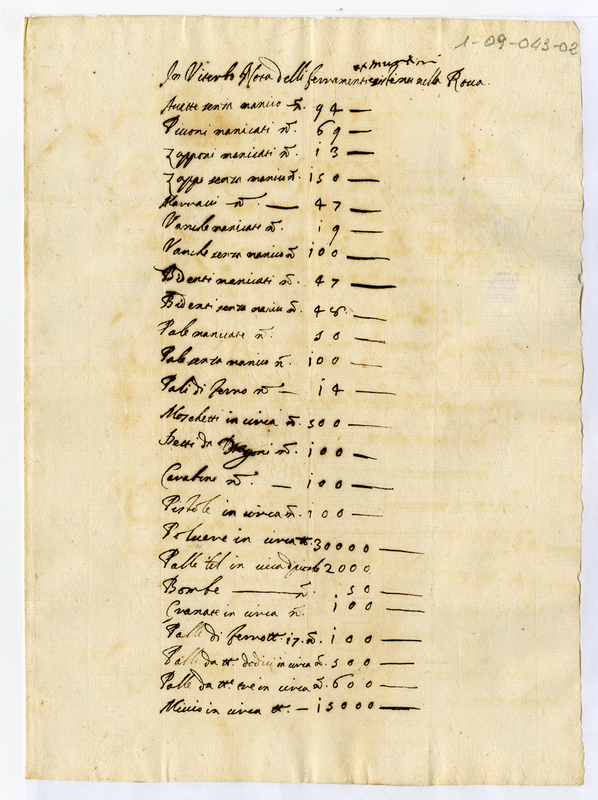 1-09-043-02
et munitioni
In Viterbo Nota delli ferramenti esistenti nella Rocca.
Accette senza manico n. 94 —
Picconi manicati n. 69 —
Zapponi manicati n. 13 —
Zappe senza manico n. 150 —
Marracci n. — 47 —
Vanghe manicate n. 19 —
Vanghe senza manico n. 100 —
Bidenti manicati n. 47 —
Bidenti senza manico n. 48. —
Pale manicate n. 50 —
Pale senza manico n. 100 —
Pali di ferro n. — 14 —
Moschetti in circa n. 500 —
Detti da Dragoni n. 100 —
Carabine n. — 100 —
Pistole in circa n. 100 —
Polvere in circa tt. 30000 —
Palle in circa 2000
Bombe — n. 50 —
Granate in circa n. 100 —
Palle di ferro tt. 17. n. 100 —
Palle da tt. dodici in circa n. 500 —
Palle da tt. tre in circa n. 600 —
Miccio in circa tt. — 15000 —